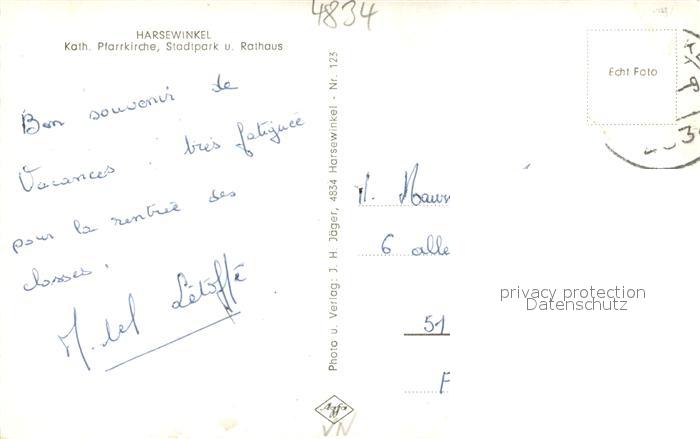 4834
HARSEWINKEL
Kath. Pfarrkirche, Stadtpark u. Rathaus
Bon souvenir de
Vacances. très fatiguée
pour la rentrée des
classes.
Létoffé
Photo u. Verlag: J. H. Jäger, 4834 Harsewinkel - Nr. 123
Echt Foto
6 alle
51
F
privacy protection
Datenschutz
Agfa
VN